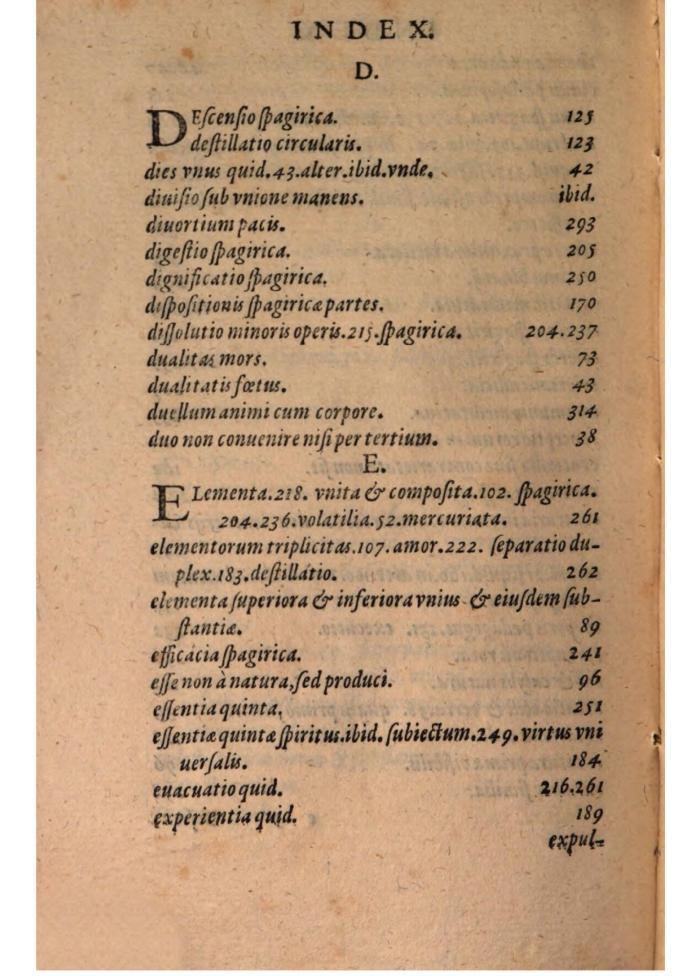 INDEX.
D.
DEſcenſio ſpagirica. 125
deſtillatio circularis. 123
dies vnus quid.43.alter.ibid.vnde. 42
diuiſio ſub vnione manens. ibid.
diuortium pacis. 293
digeſtio ſpagirica. 205
dignificatio ſpagirica. 250
diſpoſitionis ſpagiricæ partes. 170
diſſolutio minoris operis.215.ſpagirica. 204.237
dualitas mors. 73
dualitatis fœtus. 43
duellum animi cum corpore. 314
duo non conuenire niſi per tertium. 38
E.
ELementa.218. vnita & compoſita.102. ſpagirica.
204.236.volatilia.52.mercuriata. 261
elementorum triplicitas.107. amor.222. ſeparatio du-
plex.183.deſtillatio. 262
elementa ſuperiora & inferiora vnius & eiuſdem ſub-
ſtantiæ. 89
efficacia ſpagirica. 241
eſſe non à natura,ſed produci. 96
eſſentia quinta. 251
eſſentiæ quintæ ſpiritus.ibid. ſubiectum.249.virtus vni
uerſalis. 184
euacuatio quid. 216.261
experientia quid. 189
expul-